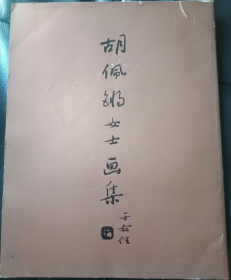 胡佩鏘女士画集
于右任